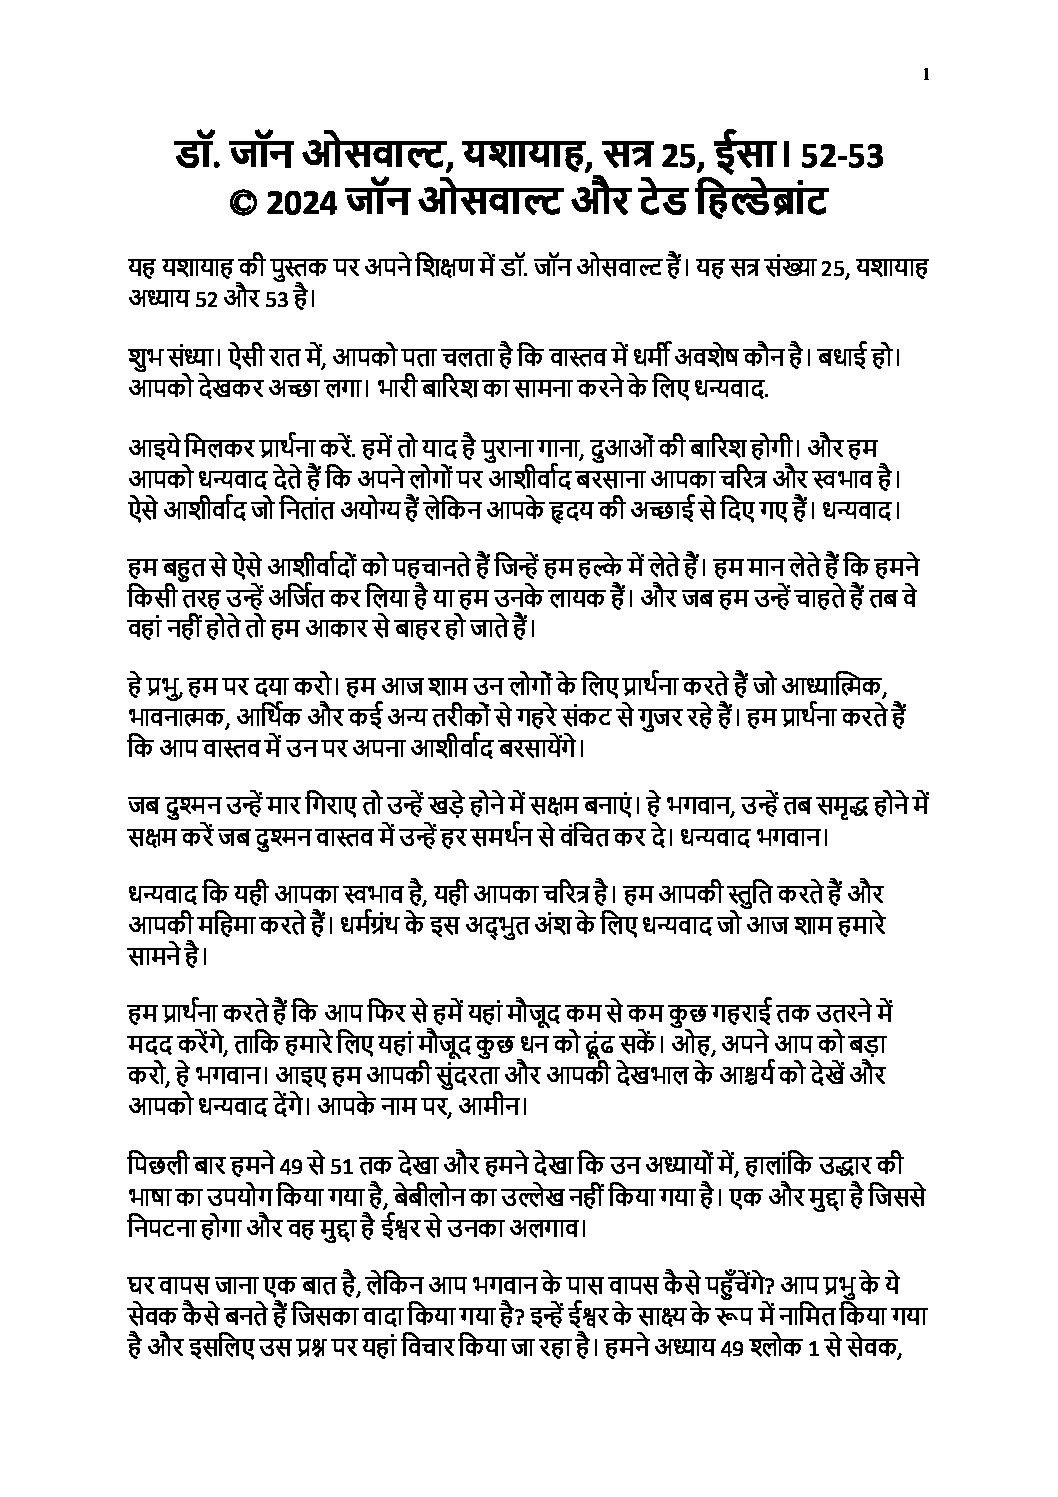 1
डॉ. जॉन ओसवाल्ट, यशायाह, सत्र 25, ईसा। 52-53
© 2024 जॉन ओसवाल्ट और टेड हिल्डेब्रांट
यह यशायाह की पुस्तक पर अपने शिक्षण में डॉ. जॉन ओसवाल्ट हैं। यह सत्र संख्या 25, यशायाह
अध्याय 52 और 53 है।
शुभ संध्या। ऐसी रात में, आपको पता चलता है कि वास्तव में धर्मी अवशेष कौन है। बधाई हो।
आपको देखकर अच्छा लगा। भारी बारिश का सामना करने के लिए धन्यवाद.
आइये मिलकर प्रार्थना करें. हमें तो याद है पुराना गाना, दुआओं की बारिश होगी। और हम
आपको धन्यवाद देते हैं कि अपने लोगों पर आशीर्वाद बरसाना आपका चरित्र और स्वभाव है।
ऐसे आशीर्वाद जो नितांत अयोग्य हैं लेकिन आपके हृदय की अच्छाई से दिए गए हैं। धन्यवाद।
हम बहुत से ऐसे आशीर्वादों को पहचानते हैं जिन्हें हम हल्के में लेते हैं। हम मान लेते हैं कि हमने
किसी तरह उन्हें अर्जित कर लिया है या हम उनके लायक हैं। और जब हम उन्हें चाहते हैं तब वे
वहां नहीं होते तो हम आकार से बाहर हो जाते हैं।
हे प्रभु, हम पर दया करो। हम आज शाम उन लोगों के लिए प्रार्थना करते हैं जो आध्यात्मिक,
भावनात्मक, आर्थिक और कई अन्य तरीकों से गहरे संकट से गुजर रहे हैं। हम प्रार्थना करते हैं
कि आप वास्तव में उन पर अपना आशीर्वाद बरसायेंगे।
जब दुश्मन उन्हें मार गिराए तो उन्हें खड़े होने में सक्षम बनाएं। हे भगवान, उन्हें तब समृद्ध होने में
सक्षम करें जब दुश्मन वास्तव में उन्हें हर समर्थन से वंचित कर दे। धन्यवाद भगवान।
धन्यवाद कि यही आपका स्वभाव है, यही आपका चरित्र है। हम आपकी स्तुति करते हैं और
आपकी महिमा करते हैं। धर्मग्रंथ के इस अद्भुत अंश के लिए धन्यवाद जो आज शाम हमारे
सामने है।
हम प्रार्थना करते हैं कि आप फिर से हमें यहां मौजूद कम से कम कुछ गहराई तक उतरने में
मदद करेंगे, ताकि हमारे लिए यहां मौजूद कुछ धन को ढूंढ सकें। ओह, अपने आप को बड़ा
करो, हे भगवान। आइए हम आपकी सुंदरता और आपकी देखभाल के आश्चर्य को देखें और
आपको धन्यवाद देंगे। आपके नाम पर, आमीन।
पिछली बार हमने 49 से 51 तक देखा और हमने देखा कि उन अध्यायों में, हालांकि उद्धार की
भाषा का उपयोग किया गया है, बेबीलोन का उल्लेख नहीं किया गया है। एक और मुद्दा है जिससे
निपटना होगा और वह मुद्दा है ईश्वर से उनका अलगाव।
घर वापस जाना एक बात है, लेकिन आप भगवान के पास वापस कैसे पहुँचेंगे? आप प्रभु के ये
सेवक कैसे बनते हैं जिसका वादा किया गया है? इन्हें ईश्वर के साक्ष्य के रूप में नामित किया गया
है और इसलिए उस प्रश्न पर यहां विचार किया जा रहा है। हमने अध्याय 49 श्लोक 1 से सेवक,